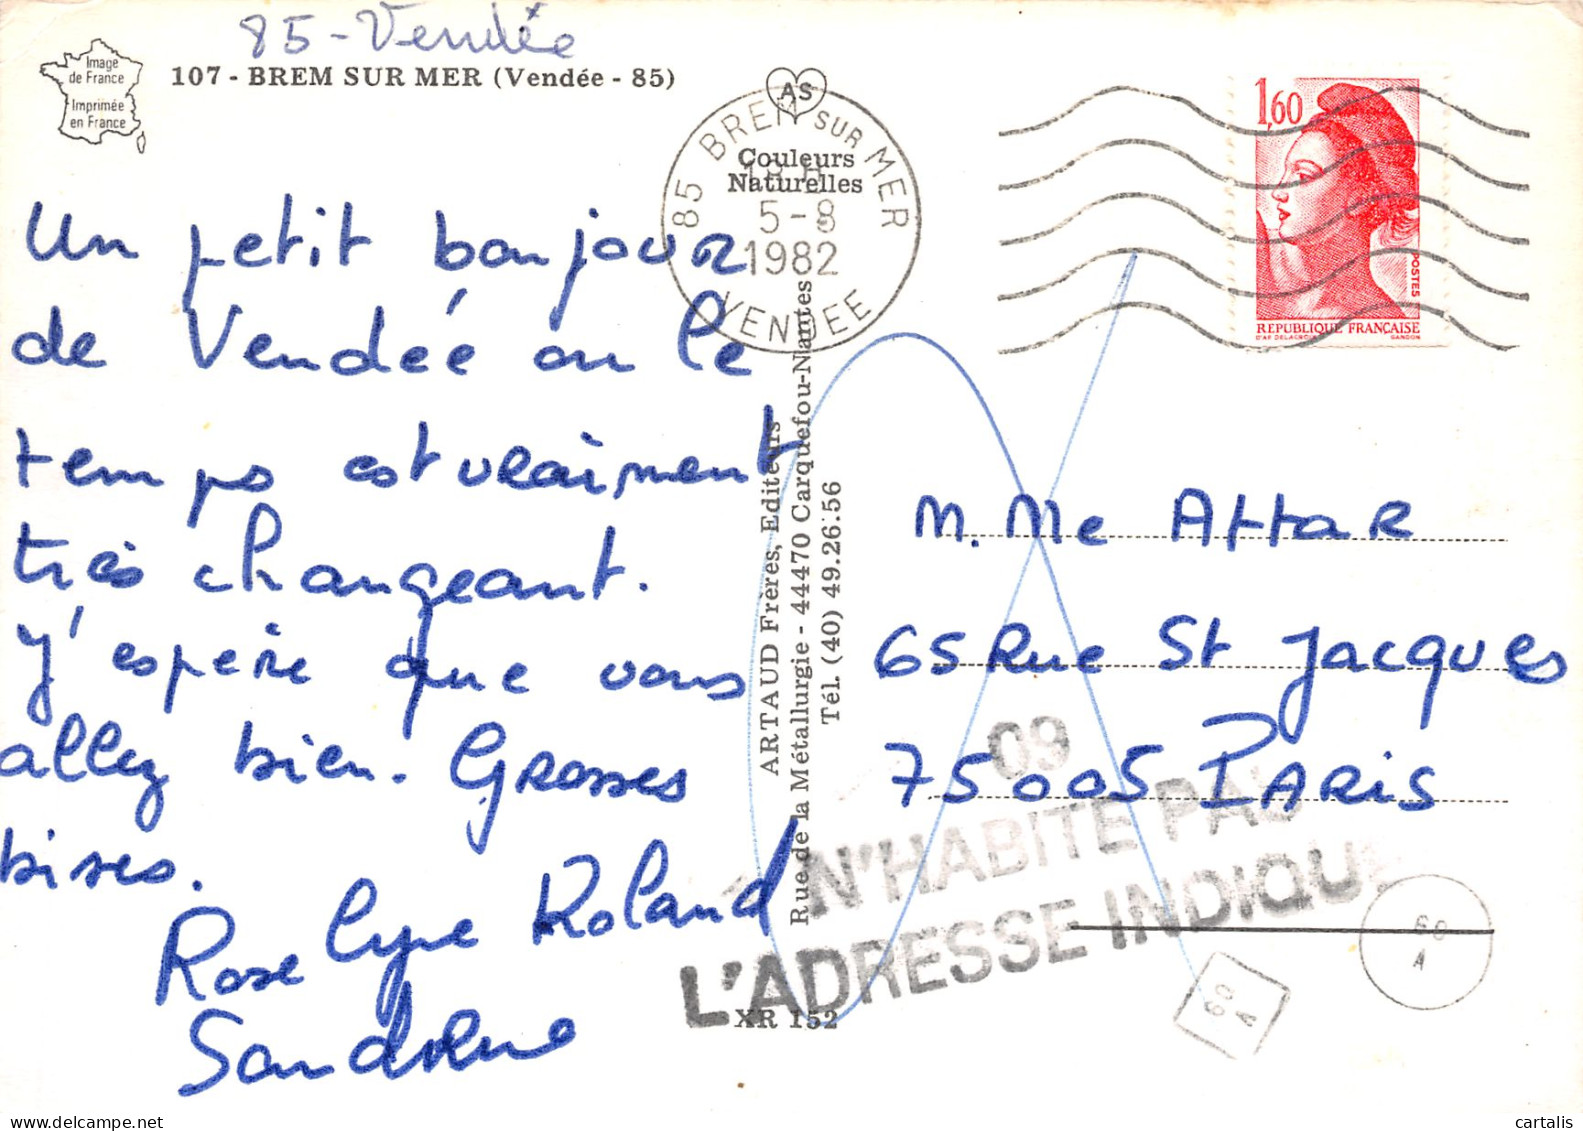 85-Vendée
Image
de France
Imprimée
en France
107 - BREM SUR MER (Vendée - 85)
AS
Couleurs
Naturelles
85 BREM SUR MER
18 H
5-8
1982
VENDEE
1,60
POSTES
REPUBLIQUE FRANÇAISE
D'AP. DELACROIX GANDON
Un petit bonjour
de Vendée ou le
temps est vraiment
très changeant.
J'espère que vous
allez bien. Grosses
bises.
Roselyne Roland
Sandrine
ARTAUD Frères, Editeurs
Rue de la Métallurgie - 44470 Carquefou-Nantes
Tél. (40) 49.26.56
XR 152
M. Me Attar
65 Rue St Jacques
75005 PARIS
09
N'HABITE PAS
L'ADRESSE INDIQUÉ
60
A
60
A
delcampe.net
cartalis